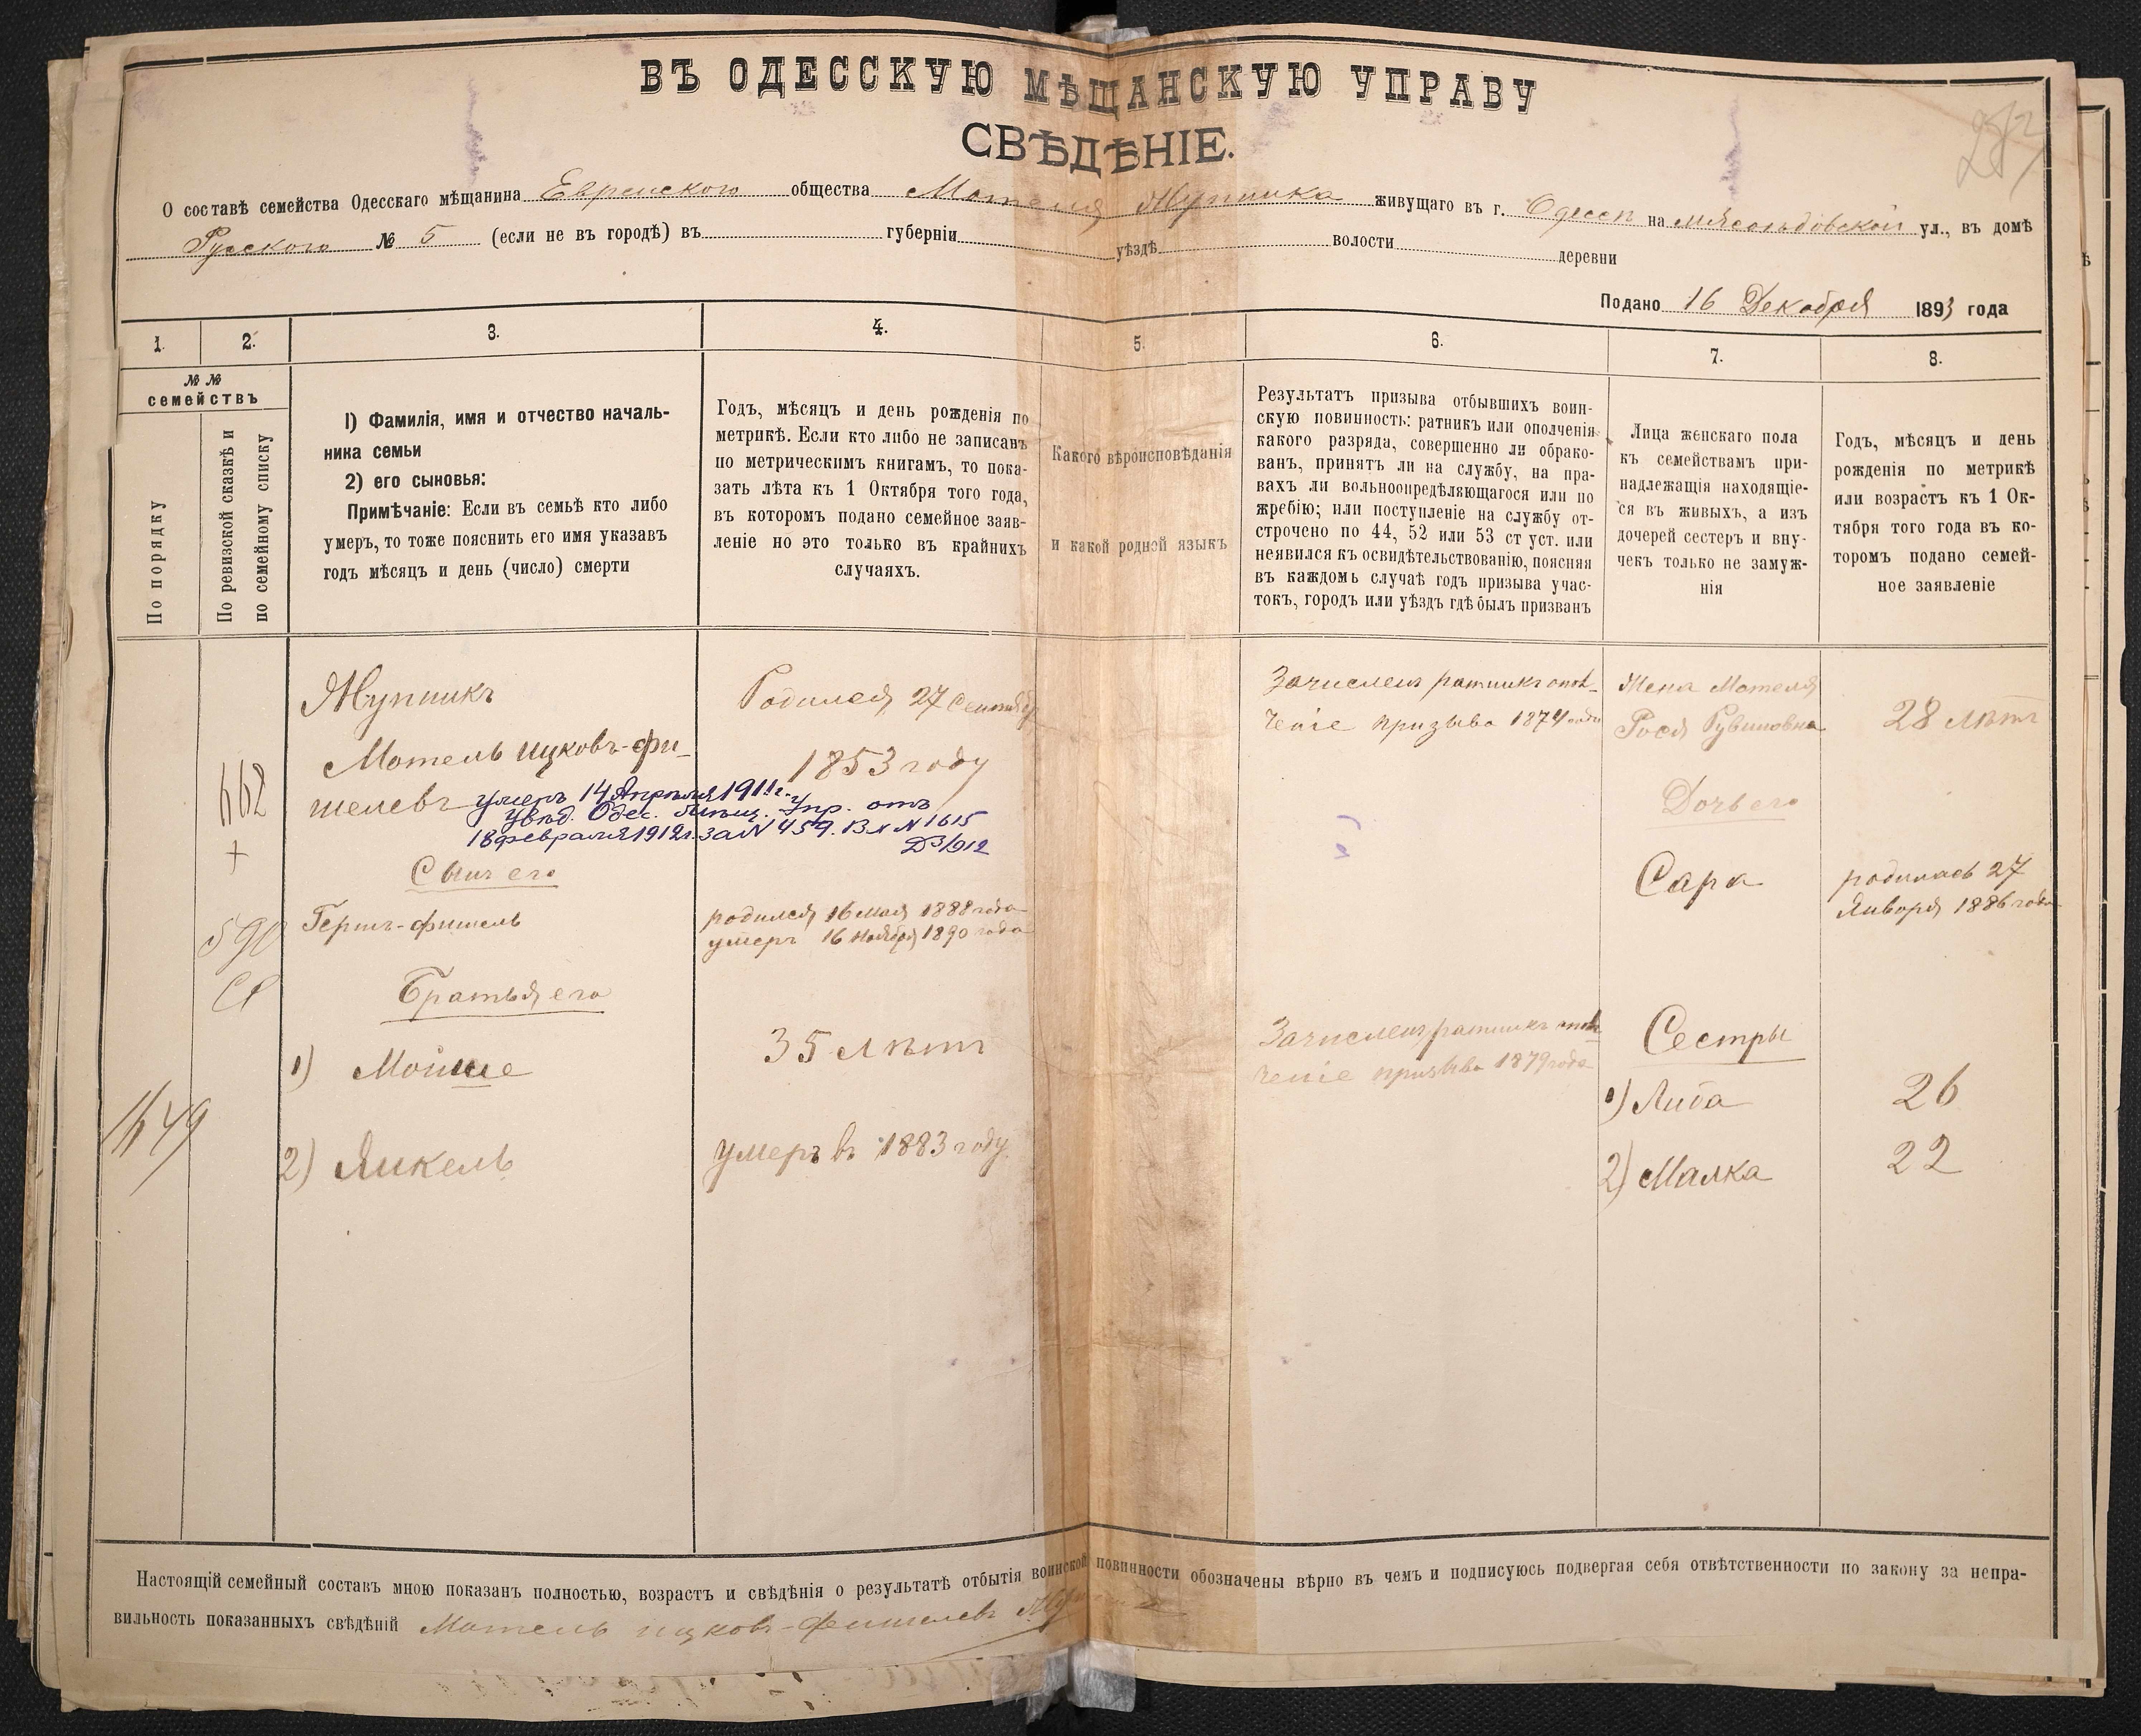 ВЪ ОДЕССКУЮ МѢЩАНСКУЮ УПРАВУ
СВѢДѢНІЕ.
О составѣ семейства Одесскаго мѣщанина Еврейского общества Мотеля Жупника живущаго въ г. Одессѣ на Мясоѣдовской ул., въ домѣ
Русского № 5 (если не въ городѣ) въ губерніи уѣздѣ волости деревни
Подано 16 Декабря 1893 года
1. 2. 3. 4. 5. 6. 7. 8.
№ №
семействъ
По порядку
По ревизской сказкѣ и
по семейному списку
1) Фамилія, имя и отчество началь-
ника семьи
2) его сыновья:
Примѣчаніе: Если въ семьѣ кто либо
умеръ, то тоже пояснить его имя указавъ
годъ мѣсяцъ и день (число) смерти
Годъ, мѣсяцъ и день рожденія по
метрикѣ. Если кто либо не записанъ
по метрическимъ книгамъ, то пока-
зать лѣта къ 1 Октября того года,
въ которомъ подано семейное заяв-
леніе но это только въ крайнихъ
случаяхъ.
Какого вѣроисповѣданія
и какой родной языкъ
Результатъ призыва отбывшихъ воин-
скую повинность: ратникъ или ополченія
какого разряда, совершенно ли обрако-
ванъ, принятъ ли на службу, на пра-
вахъ ли вольноопредѣляющагося или по
жребію; или поступленіе на службу от-
строчено по 44, 52 или 53 ст уст. или
неявился къ освидѣтельствованію, поясняя
въ каждомъ случаѣ годъ призыва учас-
токъ, городъ или уѣздъ гдѣ былъ призванъ
Лица женскаго пола
къ семействамъ при-
надлежащія находящіе-
ся въ живыхъ, а изъ
дочерей сестеръ и вну-
чекъ только не замуж-
нія
Годъ, мѣсяцъ и день
рожденія по метрикѣ
или возрастъ къ 1 Ок-
тября того года въ ко-
торомъ подано семей-
ное заявленіе
Жупникъ
Мотель Ицковъ-Фи-
шелевъ
умеръ 14 Апрѣля 1911 г.
увѣд. Одес. мѣщ. Упр. отъ
18 февраля 1912 г. за N 459. Вх N 1615
Родился 27 Сентября
1853 году
Зачисленъ ратникъ опол-
ченіе призыва 1874 года
Жена Мотеля
Рося Рувиновна
28 лѣтъ
662
+
590
Сынъ его
Гершъ-Фишель
родился 16 мая 1888 года
умеръ 16 Ноября 1890 года
Дочь его
Сара
родилась 27
Января 1886 года
Братья его
1) Мойше
35 лѣтъ
Зачисленъ ратникъ опол-
ченіе призыва 1879 года
1649
2) Янкель
умеръ въ 1883 году
Сестры
1) Либа 26
2) Малка 22
Настоящій семейный составъ мною показанъ полностью, возрастъ и свѣдѣнія о результатѣ отбытія воинской повинности обозначены вѣрно въ чемъ и подписуюсь подвергая себя отвѣтственности по закону за непра-
вильность показанныхъ свѣдѣній Мотель Ицковъ-Фишелевъ Жупникъ